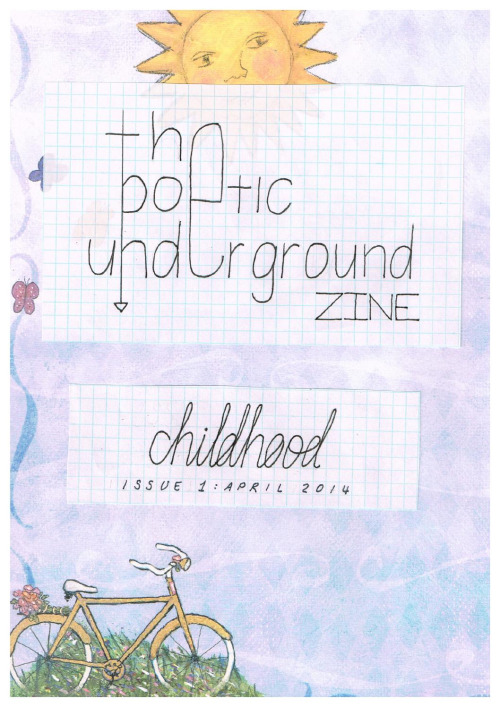 the
poetic
underground
ZINE
childhood
ISSUE 1: APRIL 2014